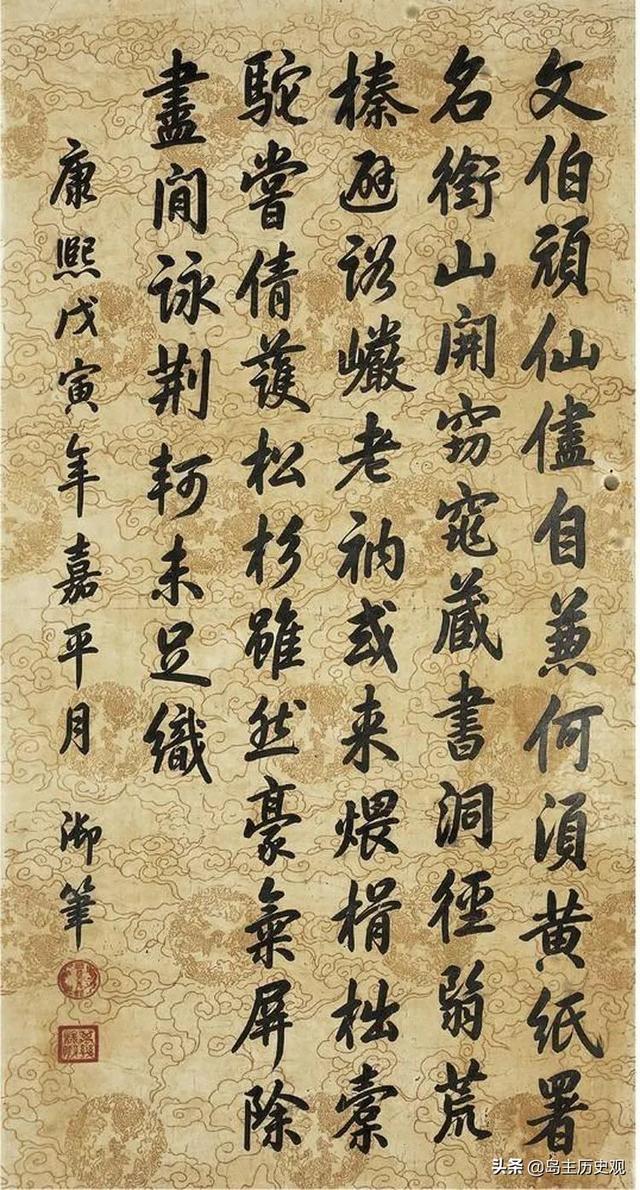 文伯頑仙儘自兼何須黃紙署
名銜山開窈窕藏書洞徑荒
榛避巖老衲或来煨榾柮橐
駝嘗倩護松杉雖然豪氣屏除
盡閒詠荆軻未足織
康熙戊寅年嘉平月御筆
头条 @岛主历史观